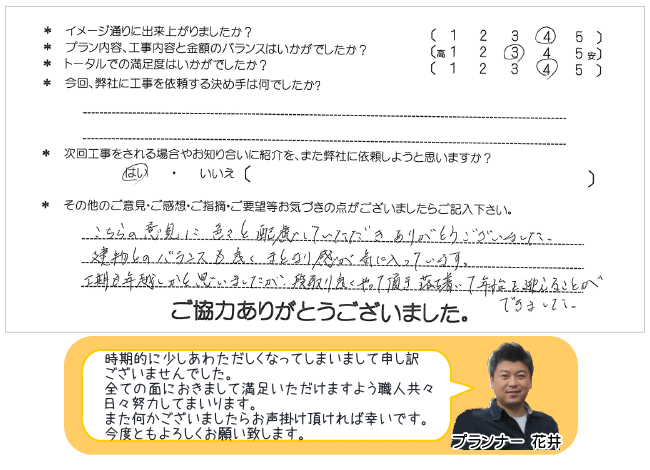 * イメージ通りに出来上がりましたか? ( 1 2 3 4 5 )
* プラン内容、工事内容と金額のバランスはいかがでしたか? (高 1 2 3 4 5 安)
* トータルでの満足度はいかがでしたか? ( 1 2 3 4 5 )
* 今回、弊社に工事を依頼する決め手は何でしたか?
* 次回工事をされる場合やお知り合いに紹介を、また弊社に依頼しようと思いますか?
はい ・ いいえ ( )
* その他のご意見・ご感想・ご指摘・ご要望等お気づきの点がございましたらご記入下さい。
こちらの意見に色々と配慮していただきありがとうございました。
建物とのバランスも良くまとまり感が気に入っています。
工期も年越しかと思いましたが、段取り良くやって頂き落ち着いて年始を迎えることが
できました。
ご協力ありがとうございました。
時期的に少しあわただしくなってしまいまして申し訳
ございませんでした。
全ての面におきまして満足いただけますよう職人共々
日々努力してまいります。
また何かございましたらお声掛け頂ければ幸いです。
今度ともよろしくお願い致します。
プランナー 花井